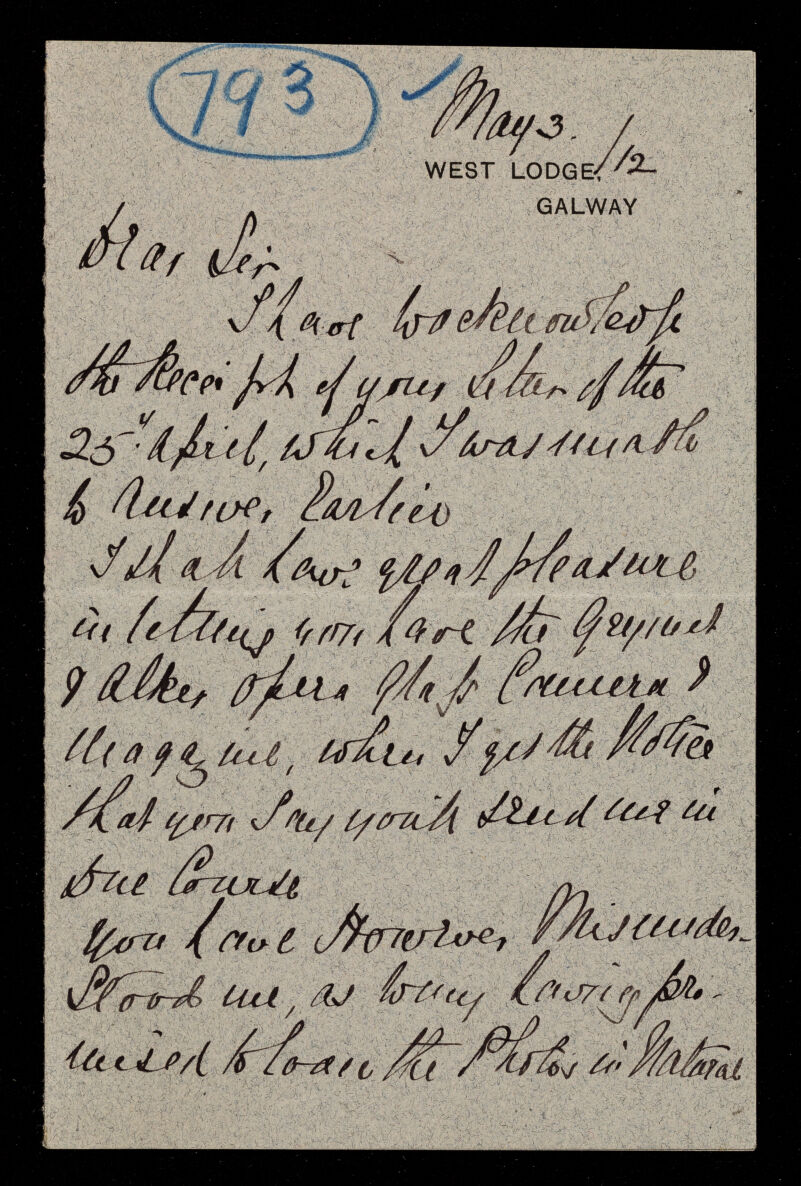 793
May 3. /12
WEST LODGE,
GALWAY
Dear Sir
I have to acknowledge
the Receipt of your Letter of the
25" April, which I was unable
to Answer Earlier
I shall have great pleasure
in letting you have the
& Alker Opera Glass Camera &
Magazine, when I get the Notice
that you Say you'll send me in
Due Course
You have However Misunder-
stood me, as to my having pro-
mised to loan the Photos in Natural